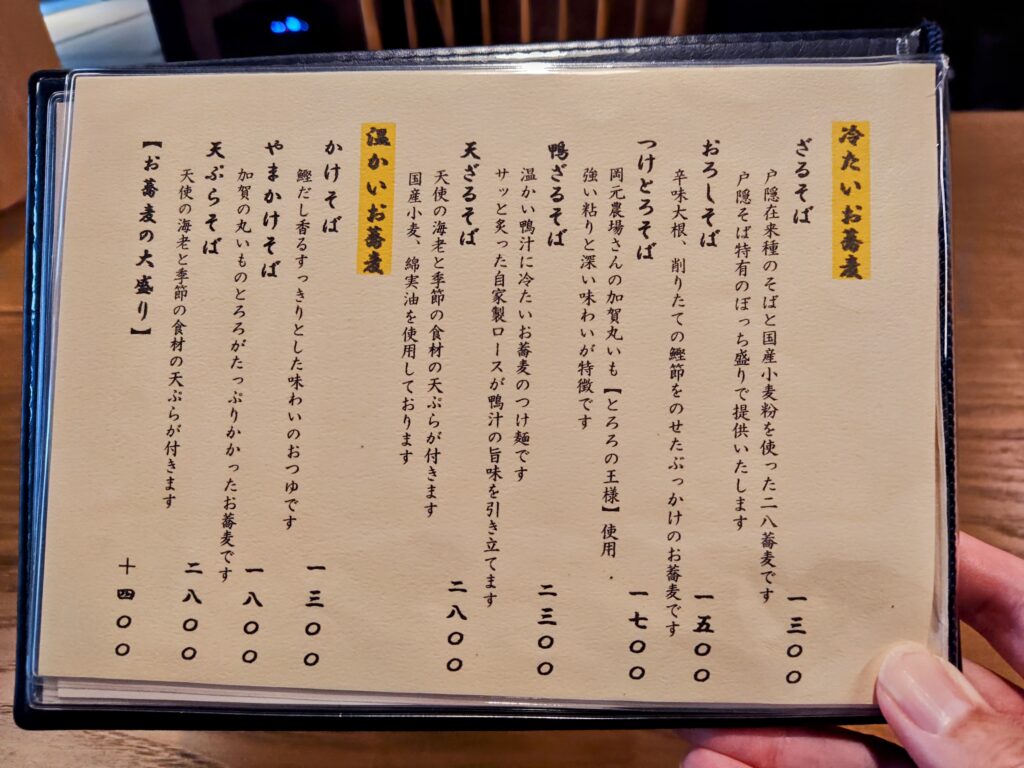 冷たいお蕎麦
ざるそば 一三〇〇
戸隠在来種のそばと国産小麦粉を使った二八蕎麦です
戸隠そば特有のぼっち盛りで提供いたします
おろしそば 一五〇〇
辛味大根、削りたての鰹節をのせたぶっかけのお蕎麦です
つけとろそば 一七〇〇
岡元農場さんの加賀丸いも【とろろの王様】使用
強い粘りと深い味わいが特徴です
鴨ざるそば 二三〇〇
温かい鴨汁に冷たいお蕎麦のつけ麺です
サッと炙った自家製ロースが鴨汁の旨味を引き立てます
天ざるそば 二八〇〇
天使の海老と季節の食材の天ぷらが付きます
国産小麦、綿実油を使用しております
温かいお蕎麦
かけそば 一三〇〇
鰹だし香るすっきりとした味わいのおつゆです
やまかけそば 一八〇〇
加賀の丸いものとろろがたっぷりかかったお蕎麦です
天ぷらそば 二八〇〇
天使の海老と季節の食材の天ぷらが付きます
【お蕎麦の大盛り】 十四〇〇